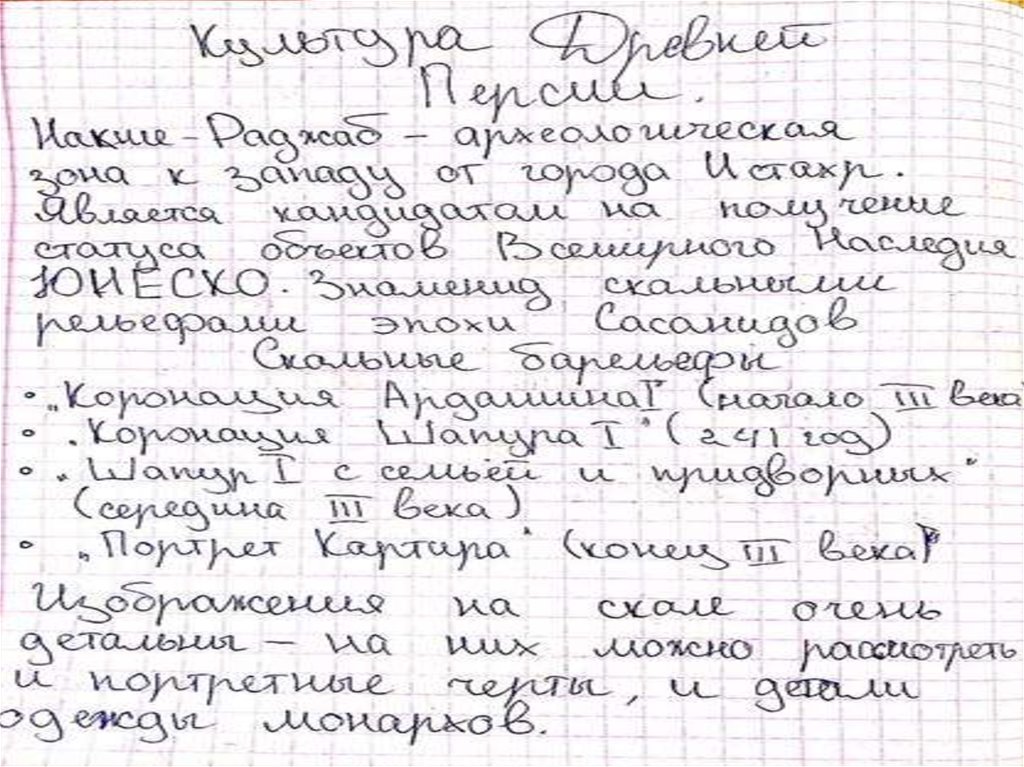 Культура Древней
Персии.
Накше-Раджаб – археологическая
зона к западу от города Истахр.
Является кандидатам на получение
статуса объектов Всемирного Наследия
ЮНЕСКО. Знаменид скальными
рельефами эпохи Сасанидов
Скальные барельефы
• „Коронация Ардашина I" (начало III века
• „Коронация Шапура I" (241 год)
• „Шапур I с семьёй и придворных"
(середина III века)
• „Портрет Картира" (конец III века)
Изображения на скале очень
детальны – на них можно рассмотреть
и портретные черты, и детали
одежды монархов.